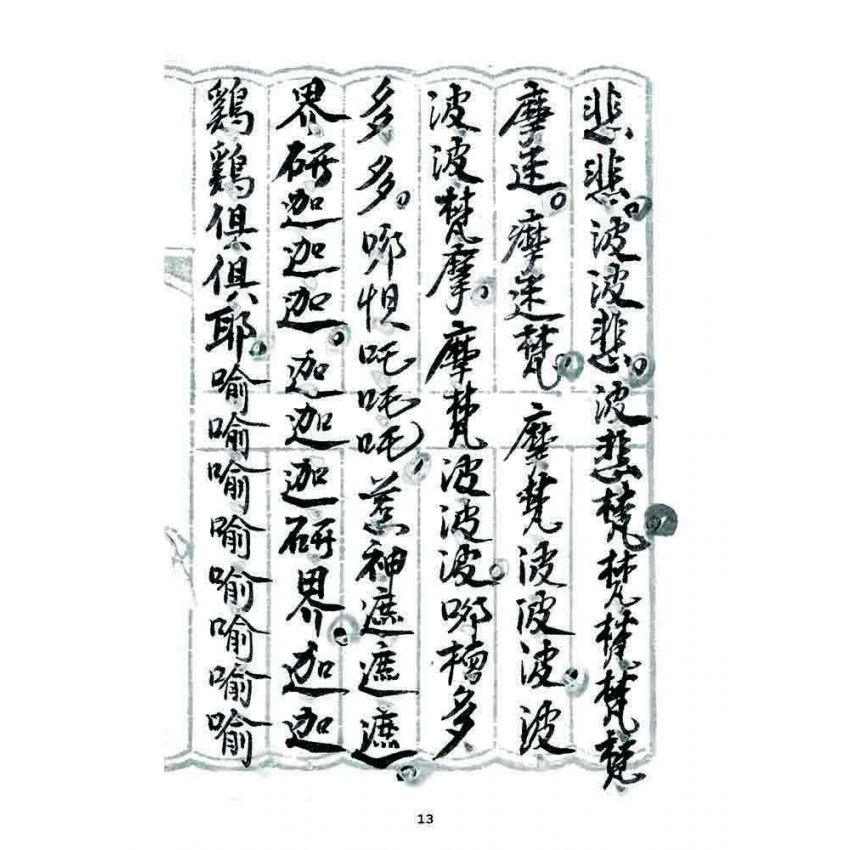 悲悲。波波悲。波悲梵梵梵梵梵
摩迷。摩迷梵。摩梵波波波。波
波波梵摩。摩梵波波波。哪檀多
多多。哪惧吒吒吒。神遮遮遮
界研迦迦迦。迦迦迦研界。迦迦
鷄鷄俱俱耶。喻喻喻喻喻喻喻喻
13